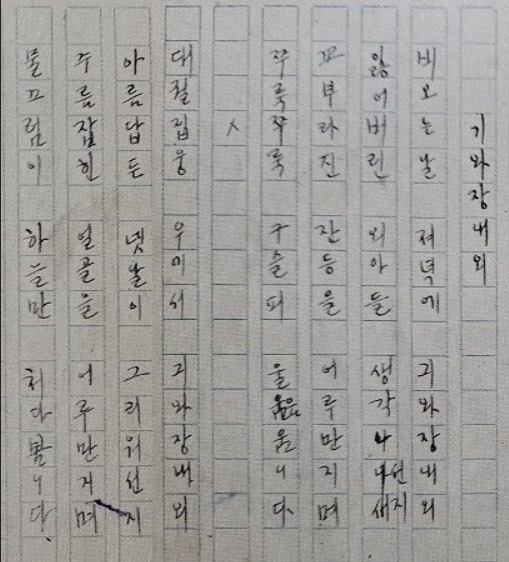 기와장내외
비오는날 저녁에 긔와장내외
잃어버린 외아들 생각나선지
꼬부라진 잔등을 어루만지며
쭈룩쭈룩 구슬피 울음웁니다
X
대궐집웅 우에서 긔와장내외
아름답든 넷날이 그리워선지
주름잡힌 얼골을 어루만지며
물끄럼이 하늘만 처다봅니다.